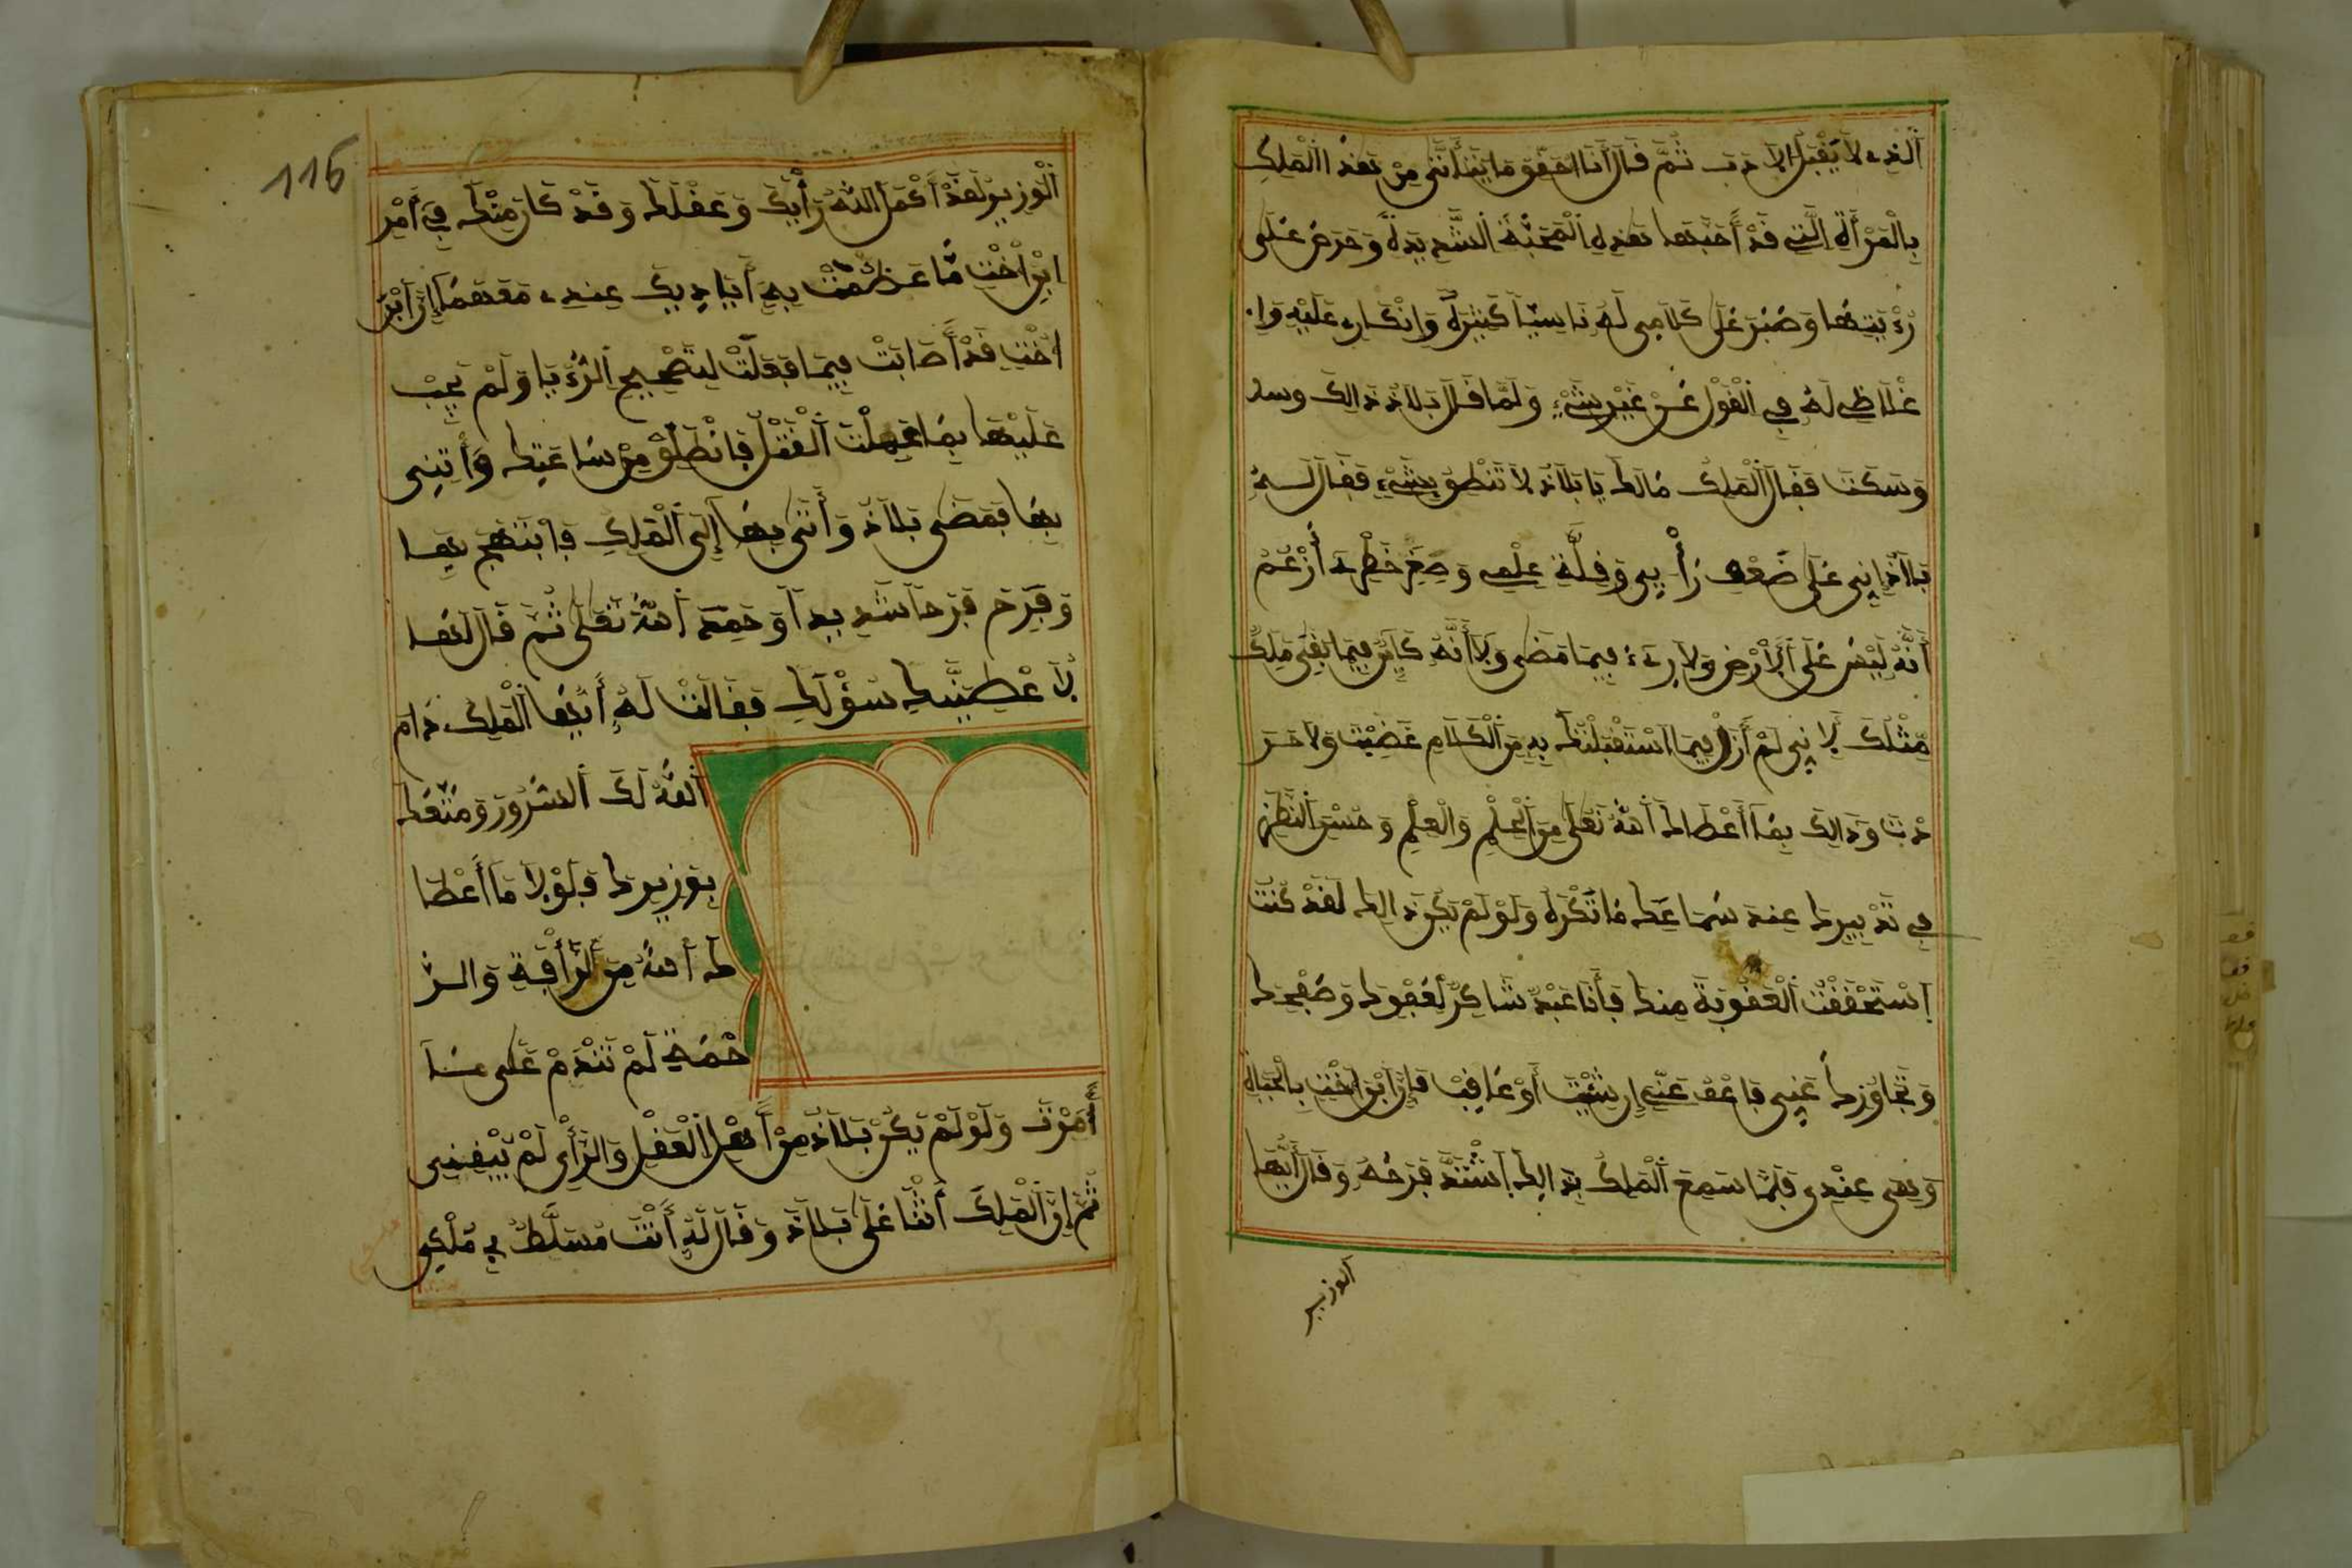 ٱلَّذِي لَا يَقْبَلُ الأدب ثُمَّ قَالَ أَنَا أحقق مَا بَيْنَ أُنْثَى مِنْ بَعْدُ الْمَلِكِ
بِالْمَرْأَةِ الَّتِي قَدْ أَحَبَّهَا هَذِهِ الْمَحَبَّةَ الشَّدِيدَةَ وَحَرَصَ عَلَى
رُؤْيَتِهَا وَصَبَرَ عَلَى كَلَامِي لَهُ نَاسِيًا كَثِيرَةً وَإِنْكَارِي عَلَيْهِ وَإِ
غْلَاظِي لَهُ فِي الْقَوْلِ عَنْ غَيْرِ شَيْءٍ وَلَمَّا قَالَ بَلَاذُ ذَالِكَ وسد
وَسَكَتَ فَقَالَ الْمَلِكُ مَا لَكَ يَا بَلَاذُ لَا تَنْطِقُ بِشَيْءٍ فَقَالَ لَهُ
بَلَاذُ إِنِّي عَلَى ضَعْفِ رَأْيِي وَقِلَّةِ عِلْمِي وَصِغَرِ خَطَرِي أَزْعُمُ
أَنَّهُ لَيْسَ عَلَى الْأَرْضِ وَلَا رِيءَ فِيمَا مَضَى وَلَا أَنَّهُ كَائِنٌ فِيمَا بَقِيَ مَلِكٌ
مِّثْلَكَ لِأَنِّي لَمْ أَزَلْ فِيمَا اسْتَقْبَلْتُكَ بِهِ مِنَ الْكَلَامِ غَضِبْتَ وَلَا حَرَ
دْتَ وَذَالِكَ بِمَا أَعْطَاكَ اللَّهُ تَعَالَى مِنَ الْعِلْمِ وَالْحِلْمِ وَحُسْنِ النَّظَرِ
فِي تَدْبِيرِكَ عِنْدَ سَمَاعِكَ مَا تَكْرَهُ وَلَوْ لَمْ يَكُنْ ذَالِكَ لَقَدْ كُنْتُ
اِسْتَحْقَقْتُ الْعُقُوبَةَ مِنْكَ فَأَنَا عَبْدٌ شَاكِرٌ لِعَفْوِكَ وَصَفْحِكَ
وَتَجَاوُزِكَ عَنِّي فَاعْفُ عَنِّي إِنْ شِئْتَ أَوْ عَاقِبْ فَإِنَّ ابْرَاخْتَ بِالْحَيَاةِ
وَهِيَ عِنْدِي فَلَمَّا سَمِعَ الْمَلِكُ بِذَالِكَ اِشْتَدَّ فَرَحُهُ وَقَالَ أَيُّهَا
الوزير
116
ٱلْوَزِيرُ لَقَدْ أَكْمَلَ اللَّهُ رَأْيَكَ وَعَقْلَكَ وَقَدْ كَانَ مِنْكَ فِي أَمْرِ
ابْرَاخْتَ مَّا عَظُمَتْ بِهِ أَيَادِيكَ عِنْدِي مَعَهَا إِنَّ ابْرَ
اخْتَ قَدْ أَصَابَتْ فِيمَا فَعَلَتْ لِتَصْحِيحِ الرُّؤْيَا وَلَمْ يَجِبْ
عَلَيْهَا بِمَا عَمِلَتْ الْقَتْلُ فَانْطَلِقْ مِنْ سَاعَتِكَ وَأْتِنِي
بِهَا فَمَضَى بَلَاذُ وَأَتَى بِهَا إِلَى الْمَلِكِ فَابْتَهَجَ بِهَا
وَفَرِحَ فَرَحًا شَدِيدًا وَحَمِدَ اللَّهَ تَعَلَى ثُمَّ قَالَ لَهَا
لَأُعْطِيَنَّكِ سُؤْلَكِ فَقَالَتْ لَهُ أَيُّهَا الْمَلِكُ دَامَ
اللَّهُ لَكَ السُّرُورَ وَمَتَّعَكَ
بِوَزِيرِكَ فَلَوْلَا مَا أَعْطَا
كَ اللَّهُ مِنَ الرَّأْفَةِ وَالرَّ
حْمَةِ لَمْ تَنْدَمْ عَلَى مَا
أَمَرْتَ وَلَوْ لَمْ يَكُنْ بَلَاذُ مِنْ أَهْلِ الْعَقْلِ وَالرَّأْيِ لَمْ يُبْقِنِي
ثُمَّ إِنَّ الْمَلِكَ أَثْنَا عَلَى بَلَاذَ وَقَالَ لَهُ أَنْتَ مُسَلَّطٌ فِي مُلْكِي